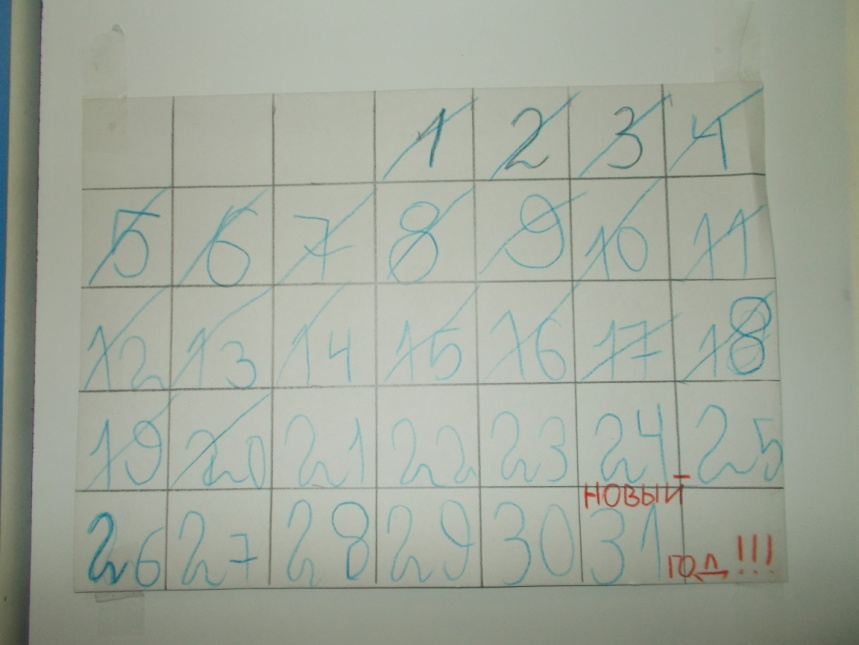 1 2 3 4
5 6 7 8 9 10 11
12 13 14 15 16 17 18
19 20 21 22 23 24 25
НОВЫЙ
26 27 28 29 30 31
ГОД!!!